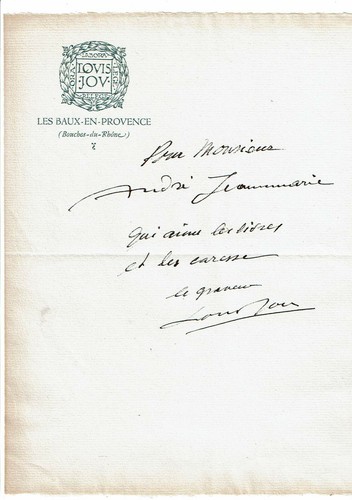 LOVIS
JOV
LES BAUX-EN-PROVENCE
(Bouches-du-Rhône)
Pour Monsieur
André Jeanmarie
qui aime les livres
et les caresse
le graveur
Louis Jou